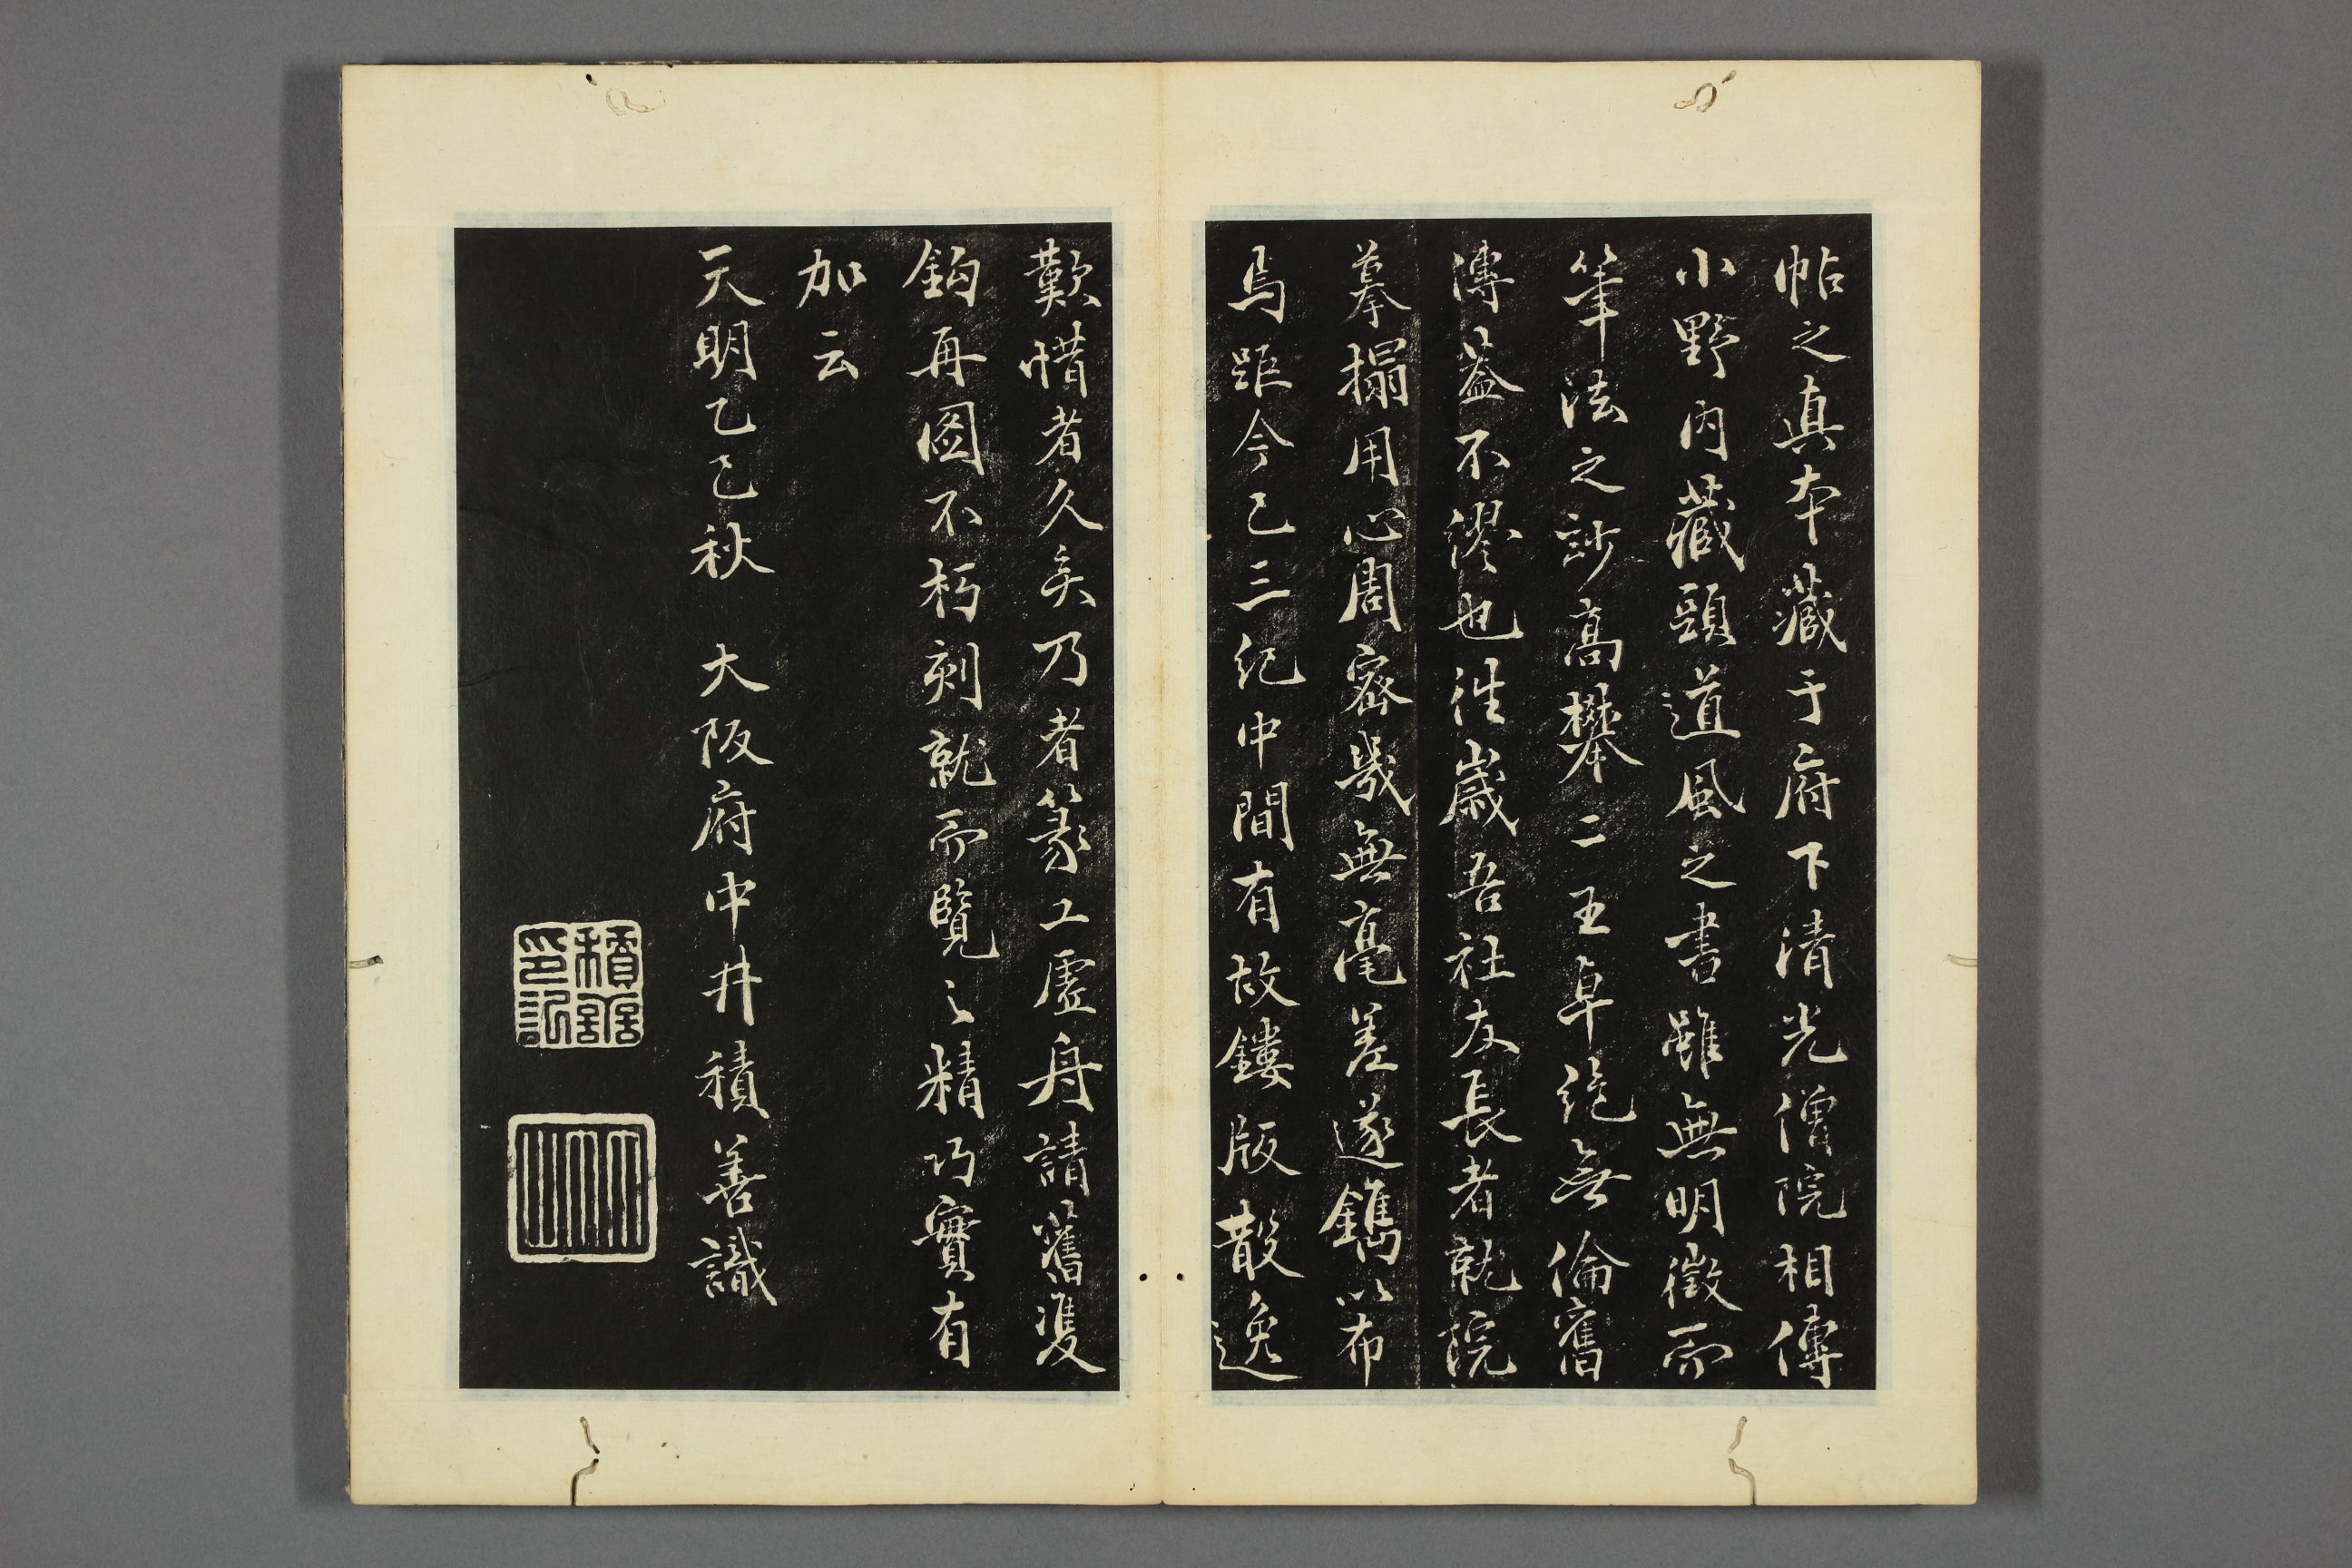 帖之真本藏于府下清光僧院相傳
小野内藏頭道風之書雖無明徵而
筆法之訬高攀二王卓絶無倫舊
傳蓋不謬也往歲吾社友長者就院
摹搨用心周密幾無毫差遂鐫以布
焉距今已三紀中間有故鏤版散逸
歎惜者久矣乃者篆工虛舟請舊雙
鈎再圖不朽刻就而覽之精巧實有
加云
天明乙巳秋 大阪府中井積善識
積善
印記